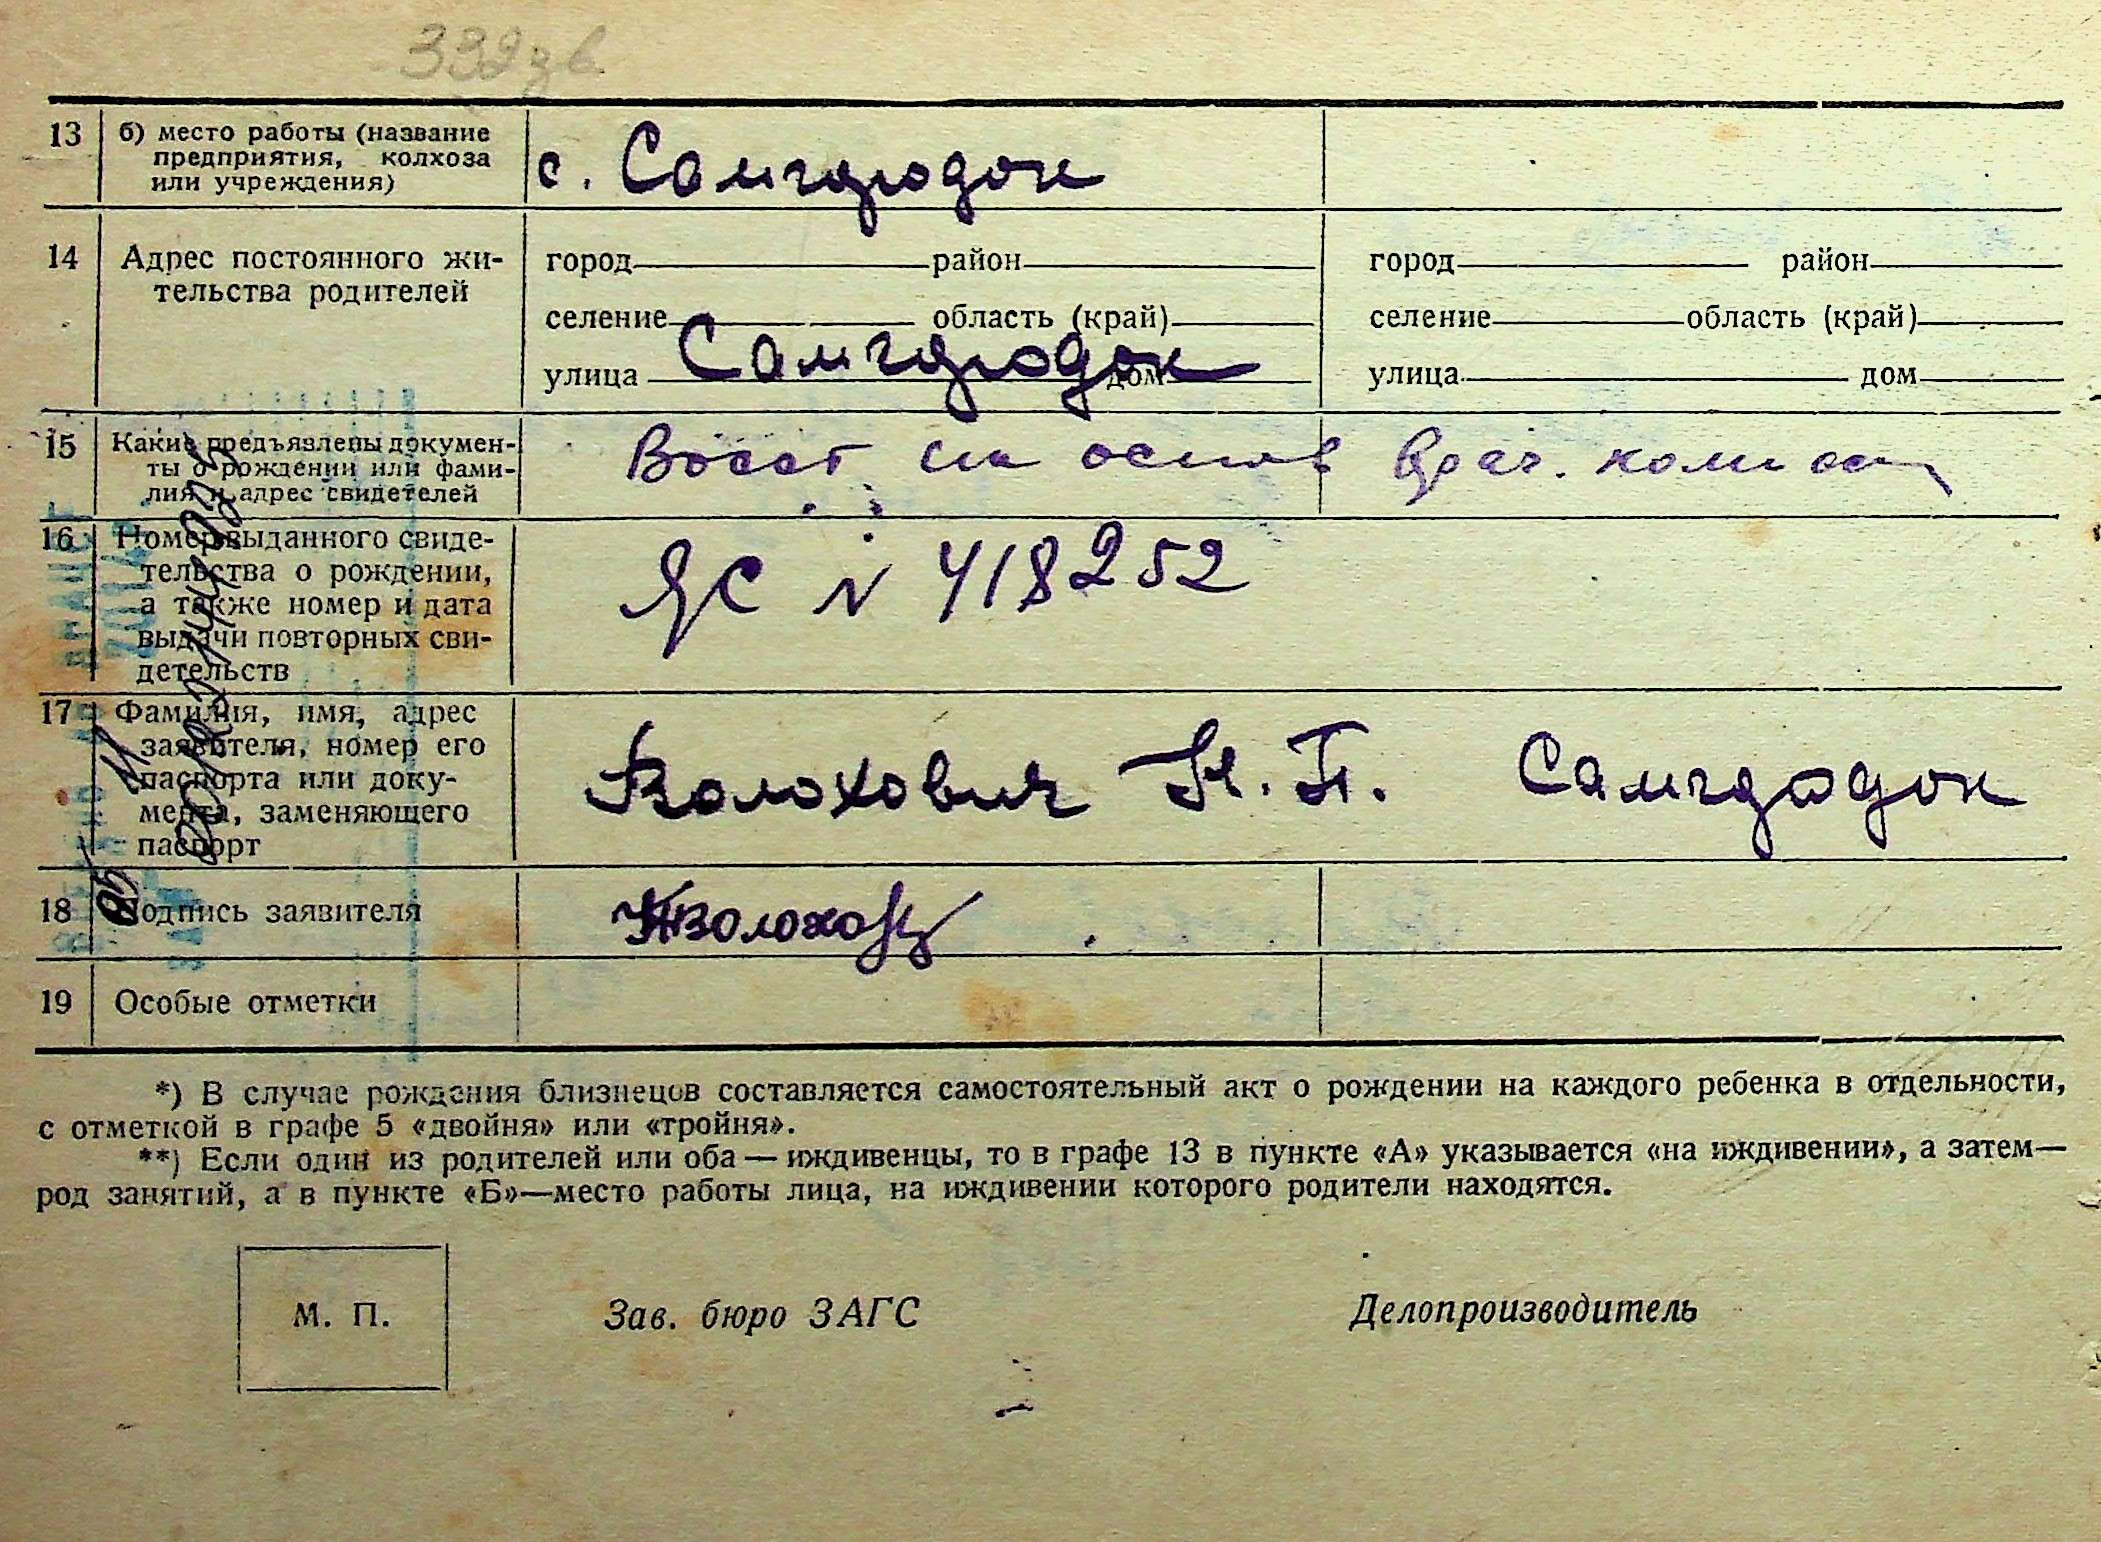 332 зв
13 б) место работы (название предприятия, колхоза или учреждения) с. Самгородок
14 Адрес постоянного жи-
тельства родителей
город район город район
селение область (край) селение область (край)
улица Самгородок дом улица дом
15 Какие предъявлены докумен-
ты о рождении или фами-
лия и адрес свидетелей
Восст на основ врач. комисси
16 Номер выданного свиде-
тельства о рождении,
а также номер и дата
выдачи повторных сви-
детельств
ЯС N 418252
17 Фамилия, имя, адрес
заявителя, номер его
паспорта или доку-
мента, заменяющего
паспорт
Волохович Н. П. Самгородок
18 Подпись заявителя
19 Особые отметки
*) В случае рождения близнецов составляется самостоятельный акт о рождении на каждого ребенка в отдельности,
с отметкой в графе 5 «двойня» или «тройня».
**) Если один из родителей или оба — иждивенцы, то в графе 13 в пункте «А» указывается «на иждивении», а затем—
род занятий, а в пункте «Б»—место работы лица, на иждивении которого родители находятся.
М. П. Зав. бюро ЗАГС Делопроизводитель